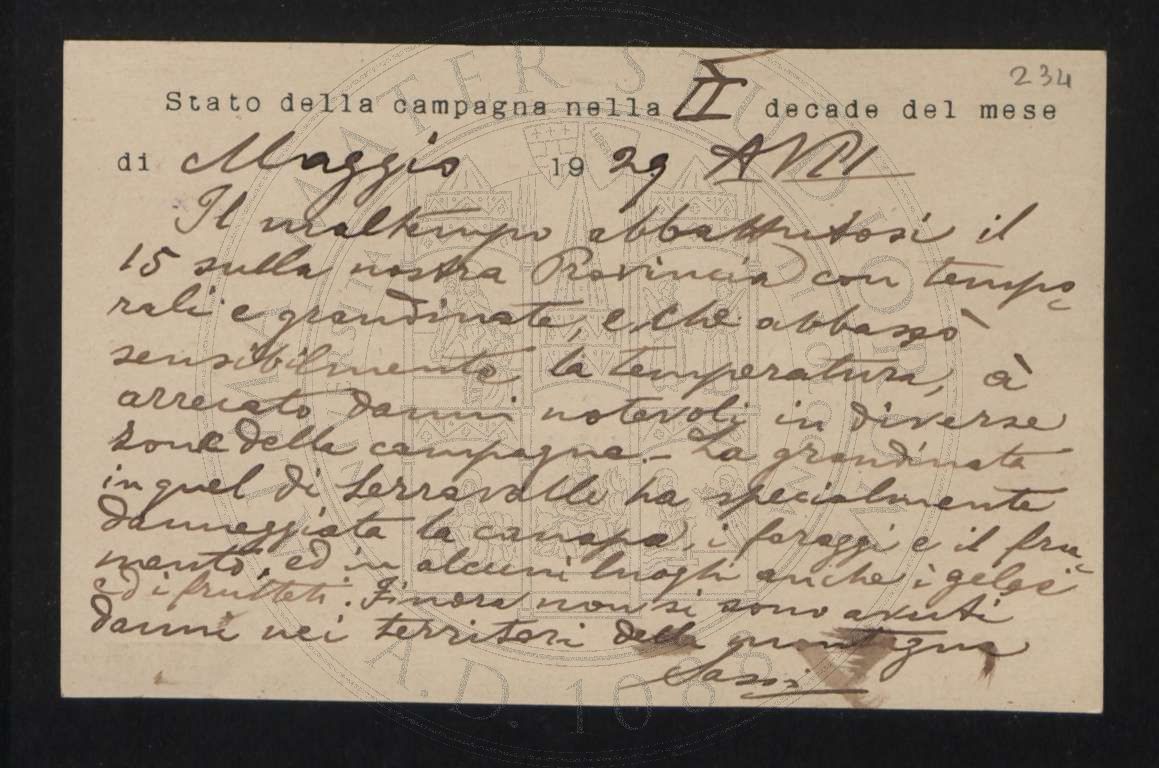 234
Stato della campagna nella II decade del mese
di Maggio 1929 A VII
Il maltempo abbattutosi il
15 sulla nostra Provincia con tempo-
rali e grandinate, e che abbassò
sensibilmente la temperatura, à
arrecato danni notevoli in diverse
zone della campagna.- La grandinata
in quel di Serravalle ha specialmente
danneggiata la canapa, i foraggi e il fru-
mento, ed in alcuni luoghi anche i gelsi
ed i frutteti. Finora non si sono avuti
danni nei territori della montagna
Sassi
ALMA MATER STUDIORUM
A.D. 1088